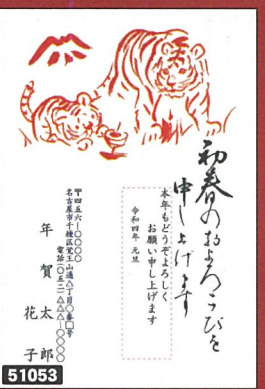 初春のおよろこびを
申し上げます
本年もどうぞよろしく
お願い申し上げます
令和四年 元旦
〒四五六-〇〇〇〇
名古屋市千種区覚王山通△丁目〇番〇号
電話〇五二-△△△-〇〇〇〇
年賀太郎
花子
51053